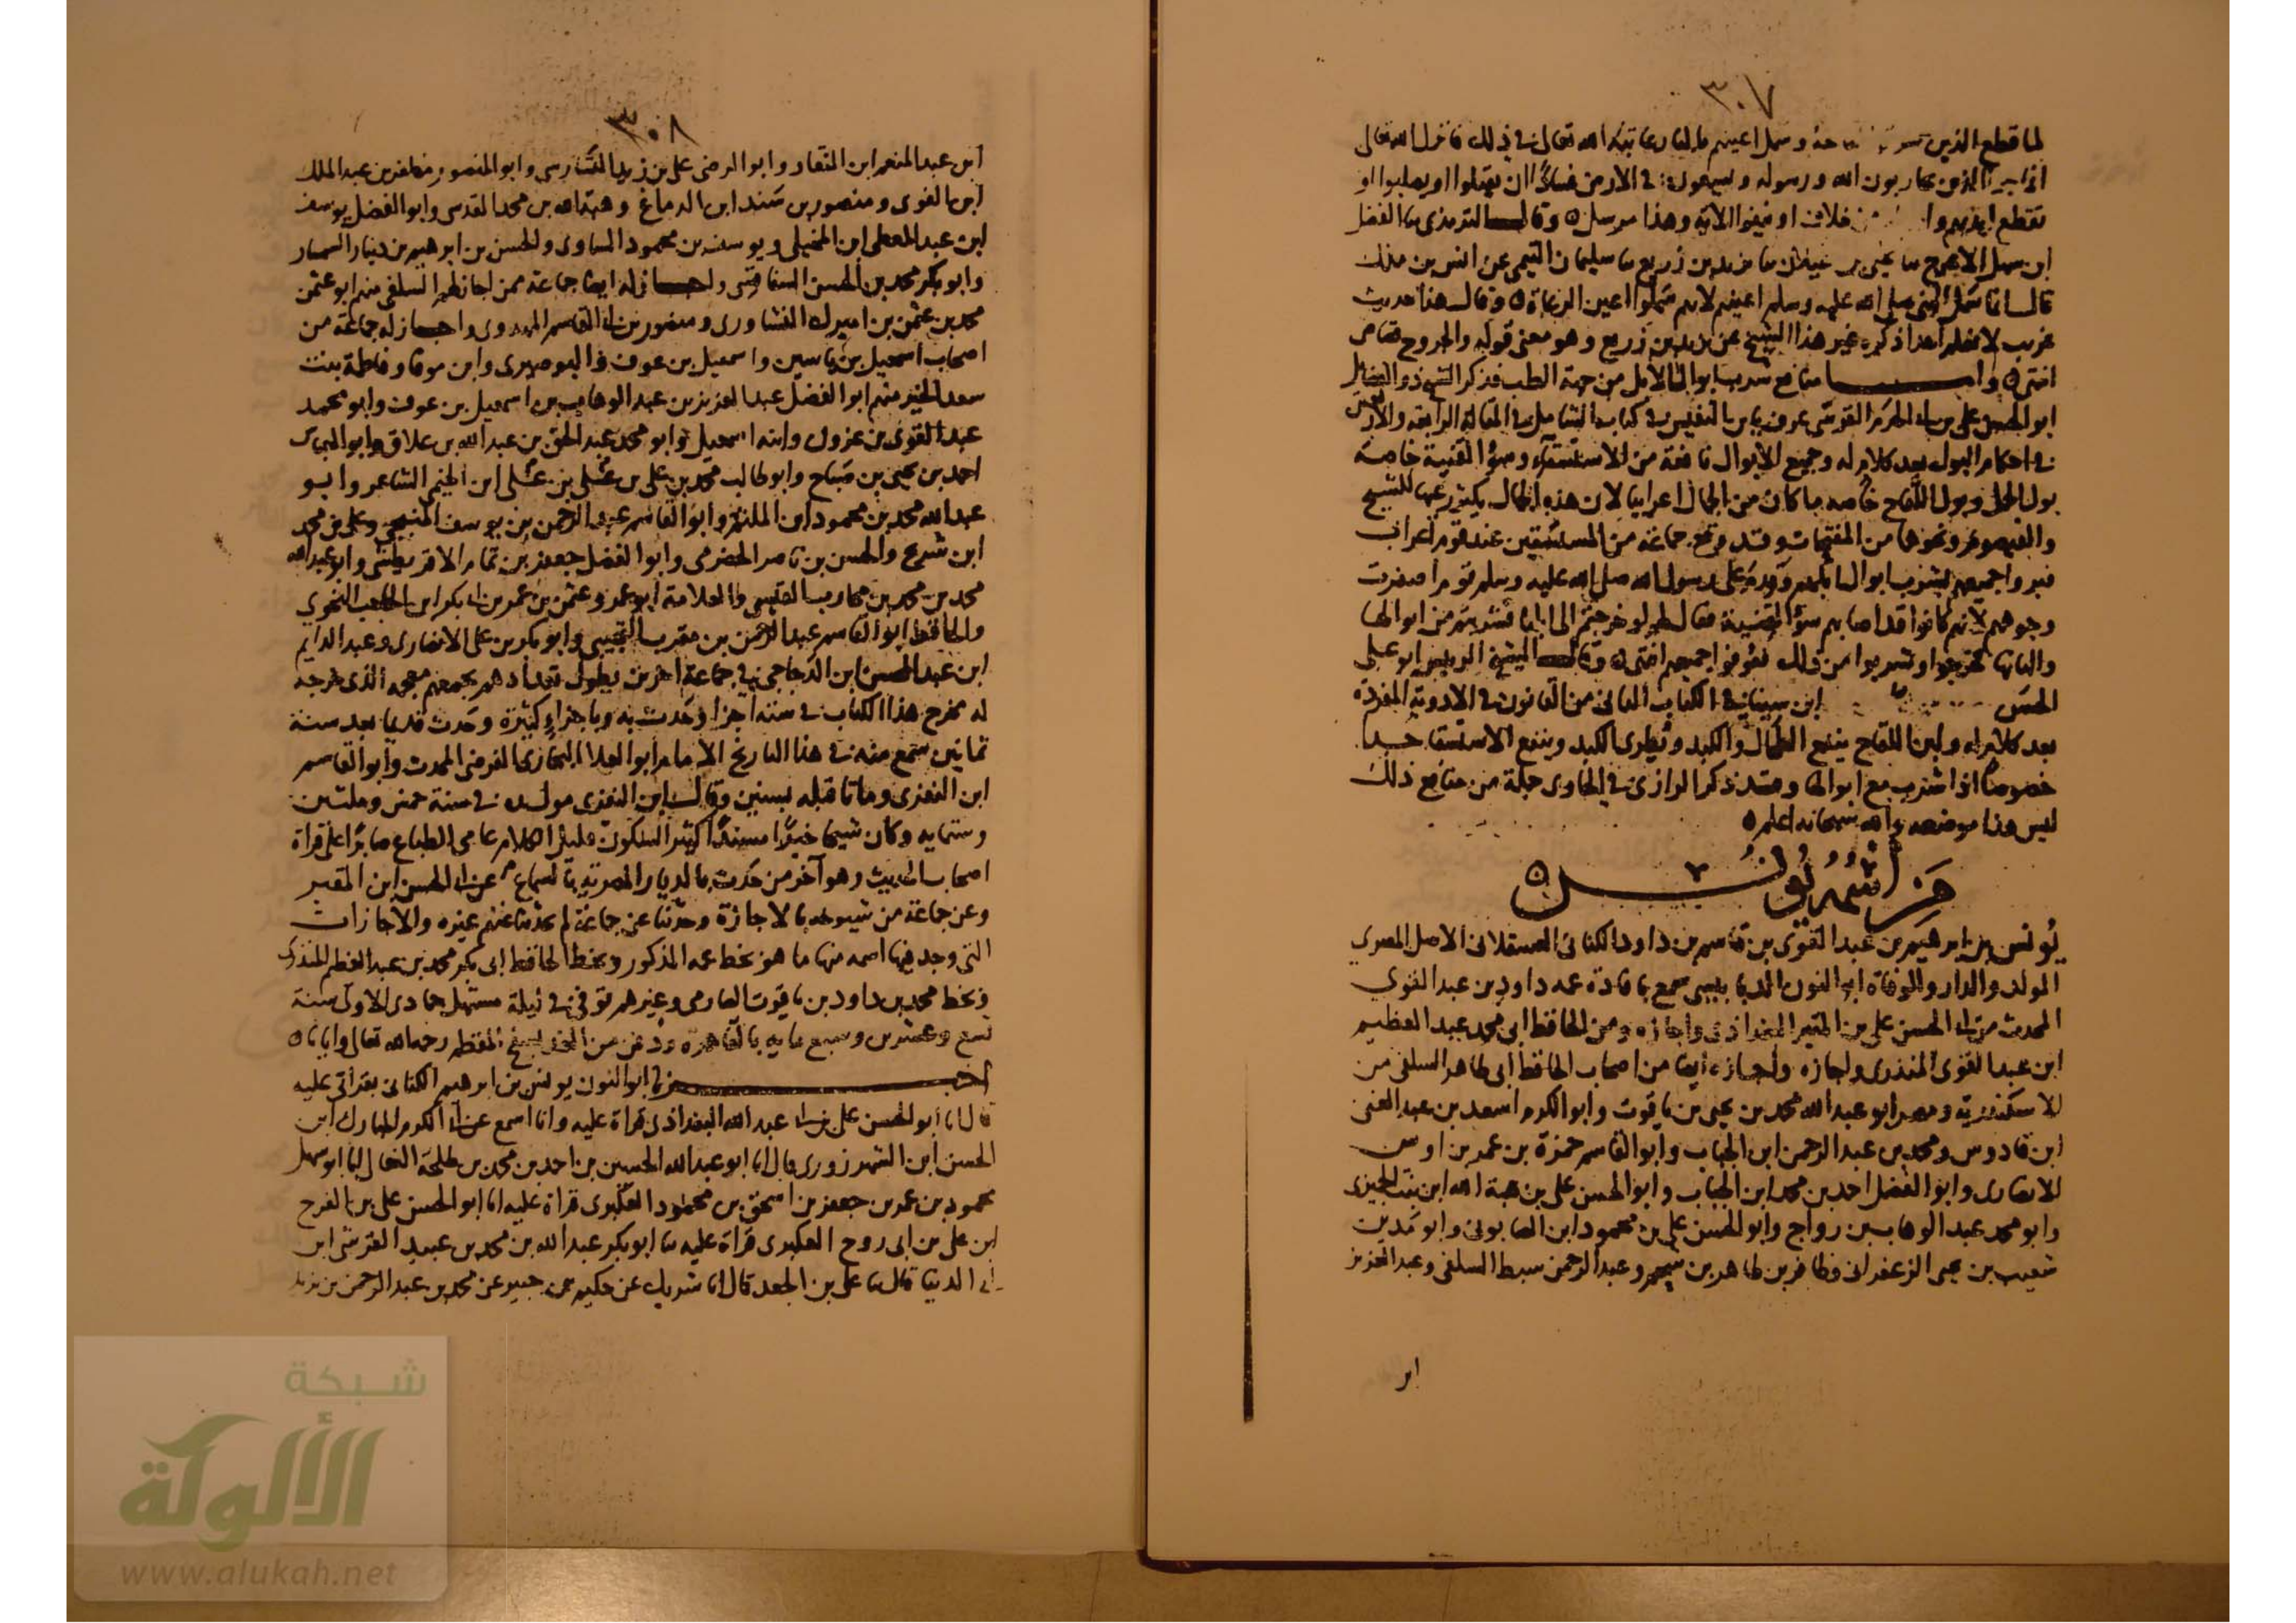 ٣٠٧
لما قطع الذين لقاحه وسمل اعينهم بالنار عاتبه الله تعالى في ذلك فانزل الله تعالى
انما جزاء الذين يحاربون الله ورسوله ويسعون في الارض فسادا ان يقتلوا او يصلبوا او
تقطع ايديهم وا من خلاف او ينفوا الاية وهذا مرسل ٥ وقال الترمذي ثنا الفضل
ابن سهل الاعرج ثنا يحيى بن غيلان ثنا يزيد بن زريع ثنا سليمان التيمي عن انس بن ملك
قال انما سمل النبي صلى الله عليه وسلم اعينهم لانهم سملوا اعين الرعاة ٥ وقال هذا حديث
غريب لا نعلم احدا ذكره غير هذا الشيخ عن يزيد بن زريع وهو معنى قوله والجروح قصاص
انتهى ٥ واما منافع شرب ابوال الابل من جهة الطب فذكر الشيخ ذو الفضايل
ابو الحسن علي بن ابي الحرم القرشي عرف بابن النفيس في كتاب الشامل في المقالة الرابعة والاربعين
في احكام البول بعد كلام له وجميع الابوال نافعة من الاستسقاء وسؤ القنية خاصة
بول الجمل وبول اللقاح خاصه ما كان من الجمال اعرابيا لان هذه الجمال يكثر رعيها للشيح
والقيصوم ونحوهما من المفتحات وقد وقع جماعة من المستسقين عند قوم اعراب
فبروا جميعهم بشرب ابوالها وقدم على رسول الله صلى الله عليه وسلم قوم اصفرت
وجوههم لانهم كانوا قد اصابهم سؤ القنية فقال لهم لو خرجتم الى ابلنا فشربتم من ابوالها
والبانها فخرجوا وشربوا من ذلك فعوفوا جميعهم انتهى ٥ وقال الشيخ الرييس ابو علي
الحسن ابن سينا في الكتاب الثاني من القانون في الادوية المفردة
بعد كلام له ولبن اللقاح ينفع الطحال والكبد ويطري الكبد وينفع الاستسقا جدا
خصوصا اذا شرب مع ابوالها وقد ذكر الرازي في الحاوي جملة من منافع ذلك
ليس هذا موضعه والله سبحانه اعلم ٥
مَن اسْمُه يُونُس ٥
يُونس بن ابرهيم بن عبد القوي بن قاسم بن داود الكناني العسقلاني الاصل المصري
المولد والدار والوفاة ابو النون الدبابيسي سمع بافادة عمه داود بن عبد القوي
المحدث من ابي الحسن علي بن المقير البغداذي واجازه ومن الحافظ ابي محمد عبد العظيم
ابن عبد القوي المنذري واجازه واجازه ايضا من اصحاب الحافظ ابي طاهر السلفي من
الاسكندرية ومصر ابو عبد الله محمد بن يحيى بن ياقوت وابو الكرم اسعد بن عبد الغني
ابن قادوس ومحمد بن عبد الرحمن ابن الجباب وابو القاسم حمزة بن عمر بن اوس
الانصاري وابو الفضل احمد بن محمد ابن الجباب وابو الحسن علي بن هبة الله ابن بنت الجميزي
وابو محمد عبد الوهاب بن رواج وابو الحسن علي بن محمود ابن الصابوني وابو مدين
شعيب بن يحيى الزعفراني وظافر بن طاهر بن سحيم وعبد الرحمن سبط السلفي وعبد العزيز
ابن
٣٠٨
ابن عبد المنعم ابن النقار وابو الرضى علي بن زيد التسارسي وابو المنصور مظفر بن عبد الملك
ابن الفوي ومنصور بن سند ابن الدماغ وهبة الله بن محمد المقدسي وابو الفضل يوسف
ابن عبد المعطي ابن المخيلي ويوسف بن محمود الساوي والحسن بن ابرهيم بن دينار السمسار
وابو بكر محمد بن الحسن السفاقسي واجاز له ايضا جماعة ممن اجاز لهم السلفي منهم ابو عثمن
محمد بن عثمن بن اميرك النشاوري ومنصور بن ابي القاسم واجاز له جماعة من
اصحاب اسمعيل بن ياسين واسمعيل بن عوف والبوصيري وابن موقا وفاطمة بنت
سعد الخير منهم ابو الفضل عبد العزيز بن عبد الوهاب بن اسمعيل بن عوف وابو محمد
عبد القوي بن عزون وابنه اسمعيل وابو محمد عبد الحق بن عبد الله بن علاق وابو العباس
احمد بن يحيى بن صباح وابو طالب محمد بن علي بن علي بن علي ابن الخيمي الشاعر وابو
عبد الله محمد بن محمود ابن الملثم وابو القاسم عبد الرحمن بن يوسف المنبجي وعلي بن محمد
ابن شرح والحسن بن ناصر الحضرمي وابو الفضل جعفر بن تمام الاقريطشي وابو عبد الله
محمد بن محمد بن محارب القيسي والعلامة ابو عمرو عثمن بن عمر بن ابي بكر ابن الحاجب النحوي
والحافظ ابو القاسم عبد الرحمن بن مقرب التجيبي وابو بكر بن علي الانصاري وعبد الدايم
ابن عبد المحسن ابن الدجاجي في جماعة اخرين يطول تعدادهم يجمعهم معجمه الذي خرجه
له مخرج هذا الكتاب في ستة اجزا وحدث به وباجزاء كثيرة وحدث قديما بعد سنة
ثمانين سمع منه في هذا التاريخ الامام ابو العلا البخاري الفرضي المحدث وابو القاسم
ابن الفغزي وماتا قبله بسنين وقال ابن النغزي مولده في سنة خمس وثلثين
وستمايه وكان شيخا خيرا مسندا كثير السكون قليل الكلام عامي الطباع صابرا على قراة
اصحاب الحديث وهو آخر من حدث بالديار المصرية بالسماع عن ابي الحسن ابن المقير
وعن جماعة من شيوخه بالاجازة وحدثنا عن جماعة لم يحدثنا عنهم غيره والاجازات
التي وجد فيها اسمه منها ما هو بخط عمه المذكور وبخط الحافظ ابي بكر محمد بن عبد العظيم المنذري
وبخط محمد بن داود بن ياقوت الصارمي وغيرهم توفي في ليلة مستهل جمادى الاولى سنة
تسع وعشرين وسبع مايه بالقاهرة ودفن من الغد بسفح المقطم رحمه الله تعالى وايانا ٥
اخبرنا ابو النون يونس بن ابرهيم الكناني بقراتي عليه
قال انا ابو الحسن علي بن ابي عبد الله البغداذي قراة عليه وانا اسمع عن ابي الكرم المبارك ابن
الحسن ابن الشهرزوري قال انا ابو عبد الله الحسين بن احمد بن محمد بن طلحة النعالي انا ابو سهل
محمود بن عمر بن جعفر بن اسحق بن محمود العكبري قراة عليه انا ابو الحسن علي بن الفرج
ابن علي بن ابي روح العكبري قراة عليه ثنا ابو بكر عبد الله بن محمد بن عبيد القرشي ابن
ابي الدنيا قال ثنا علي بن الجعد قال انا شريك عن حكيم بن جبير عن محمد بن عبد الرحمن بن يزيد
شبكة
الألوكة
www.alukah.net